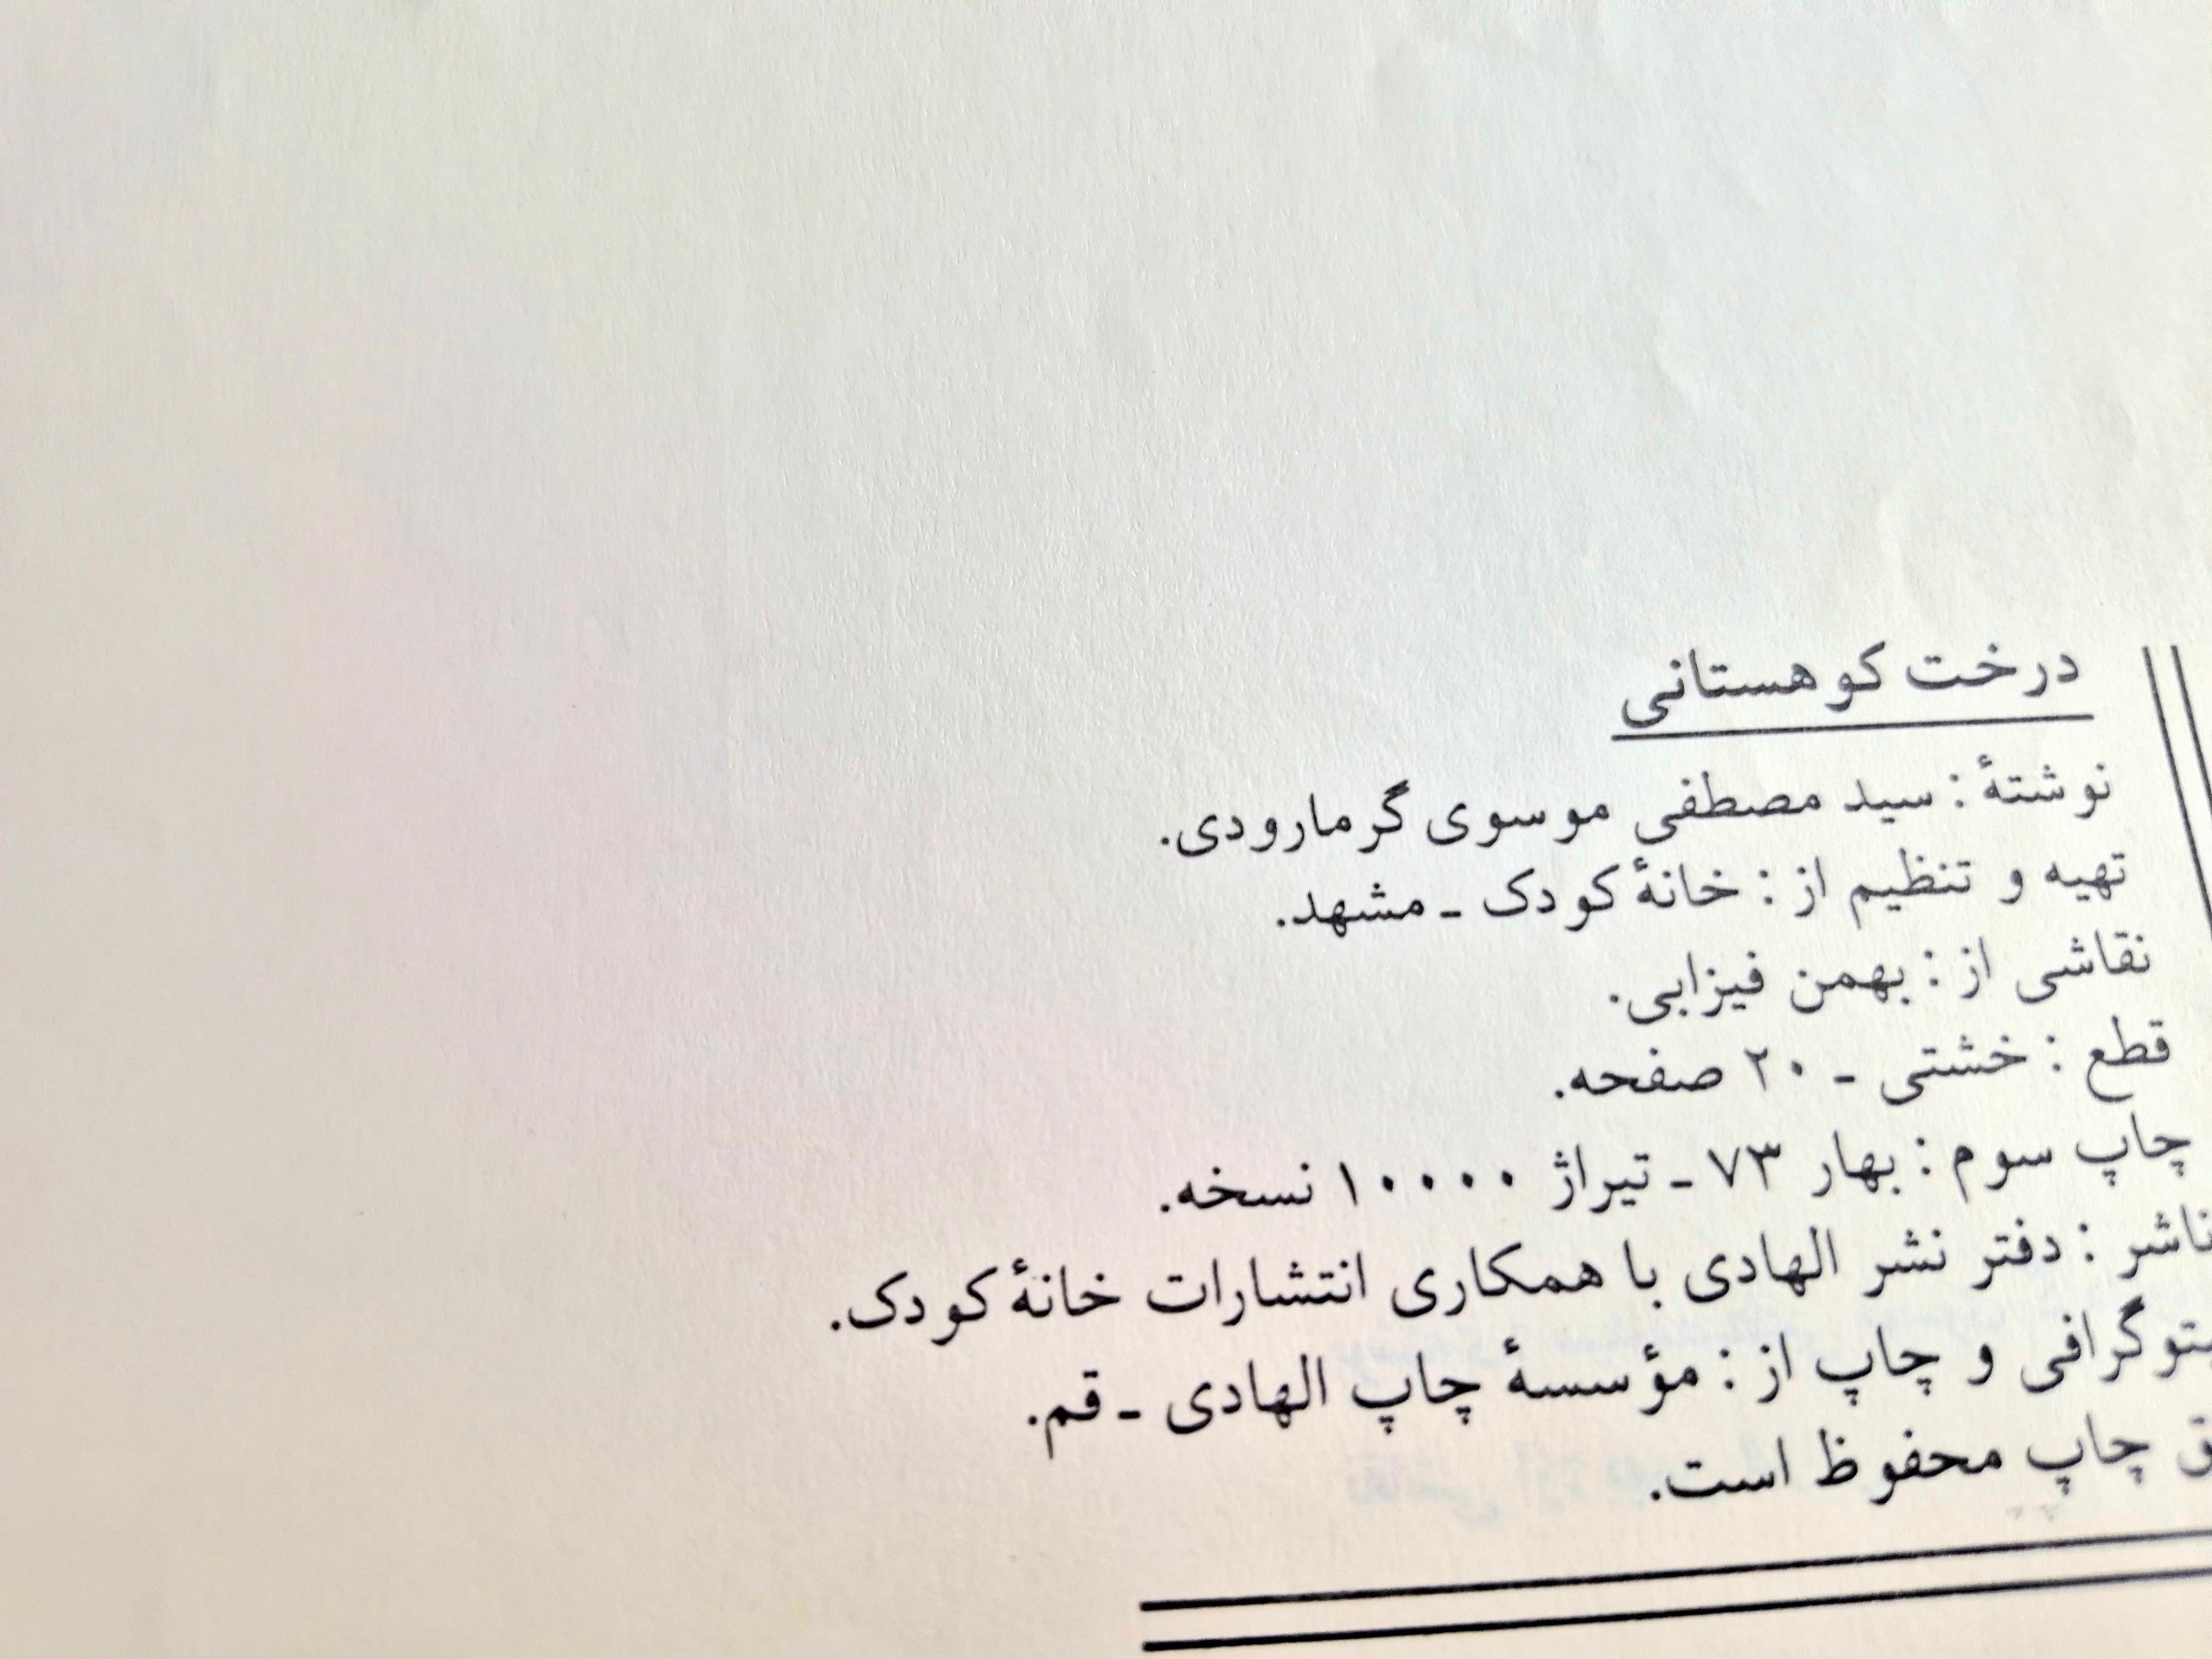 درخت کوهستانی
نوشتهٔ : سید مصطفی موسوی گرمارودی.
تهیه و تنظیم از : خانهٔ کودک ـ مشهد.
نقاشی از : بهمن فیزابی.
قطع : خشتی ـ ۲۰ صفحه.
چاپ سوم : بهار ۷۳ ـ تیراژ ۱۰۰۰۰ نسخه.
ناشر : دفتر نشر الهادی با همکاری انتشارات خانهٔ کودک.
و چاپ از : مؤسسهٔ چاپ الهادی ـ قم.
چاپ محفوظ است.